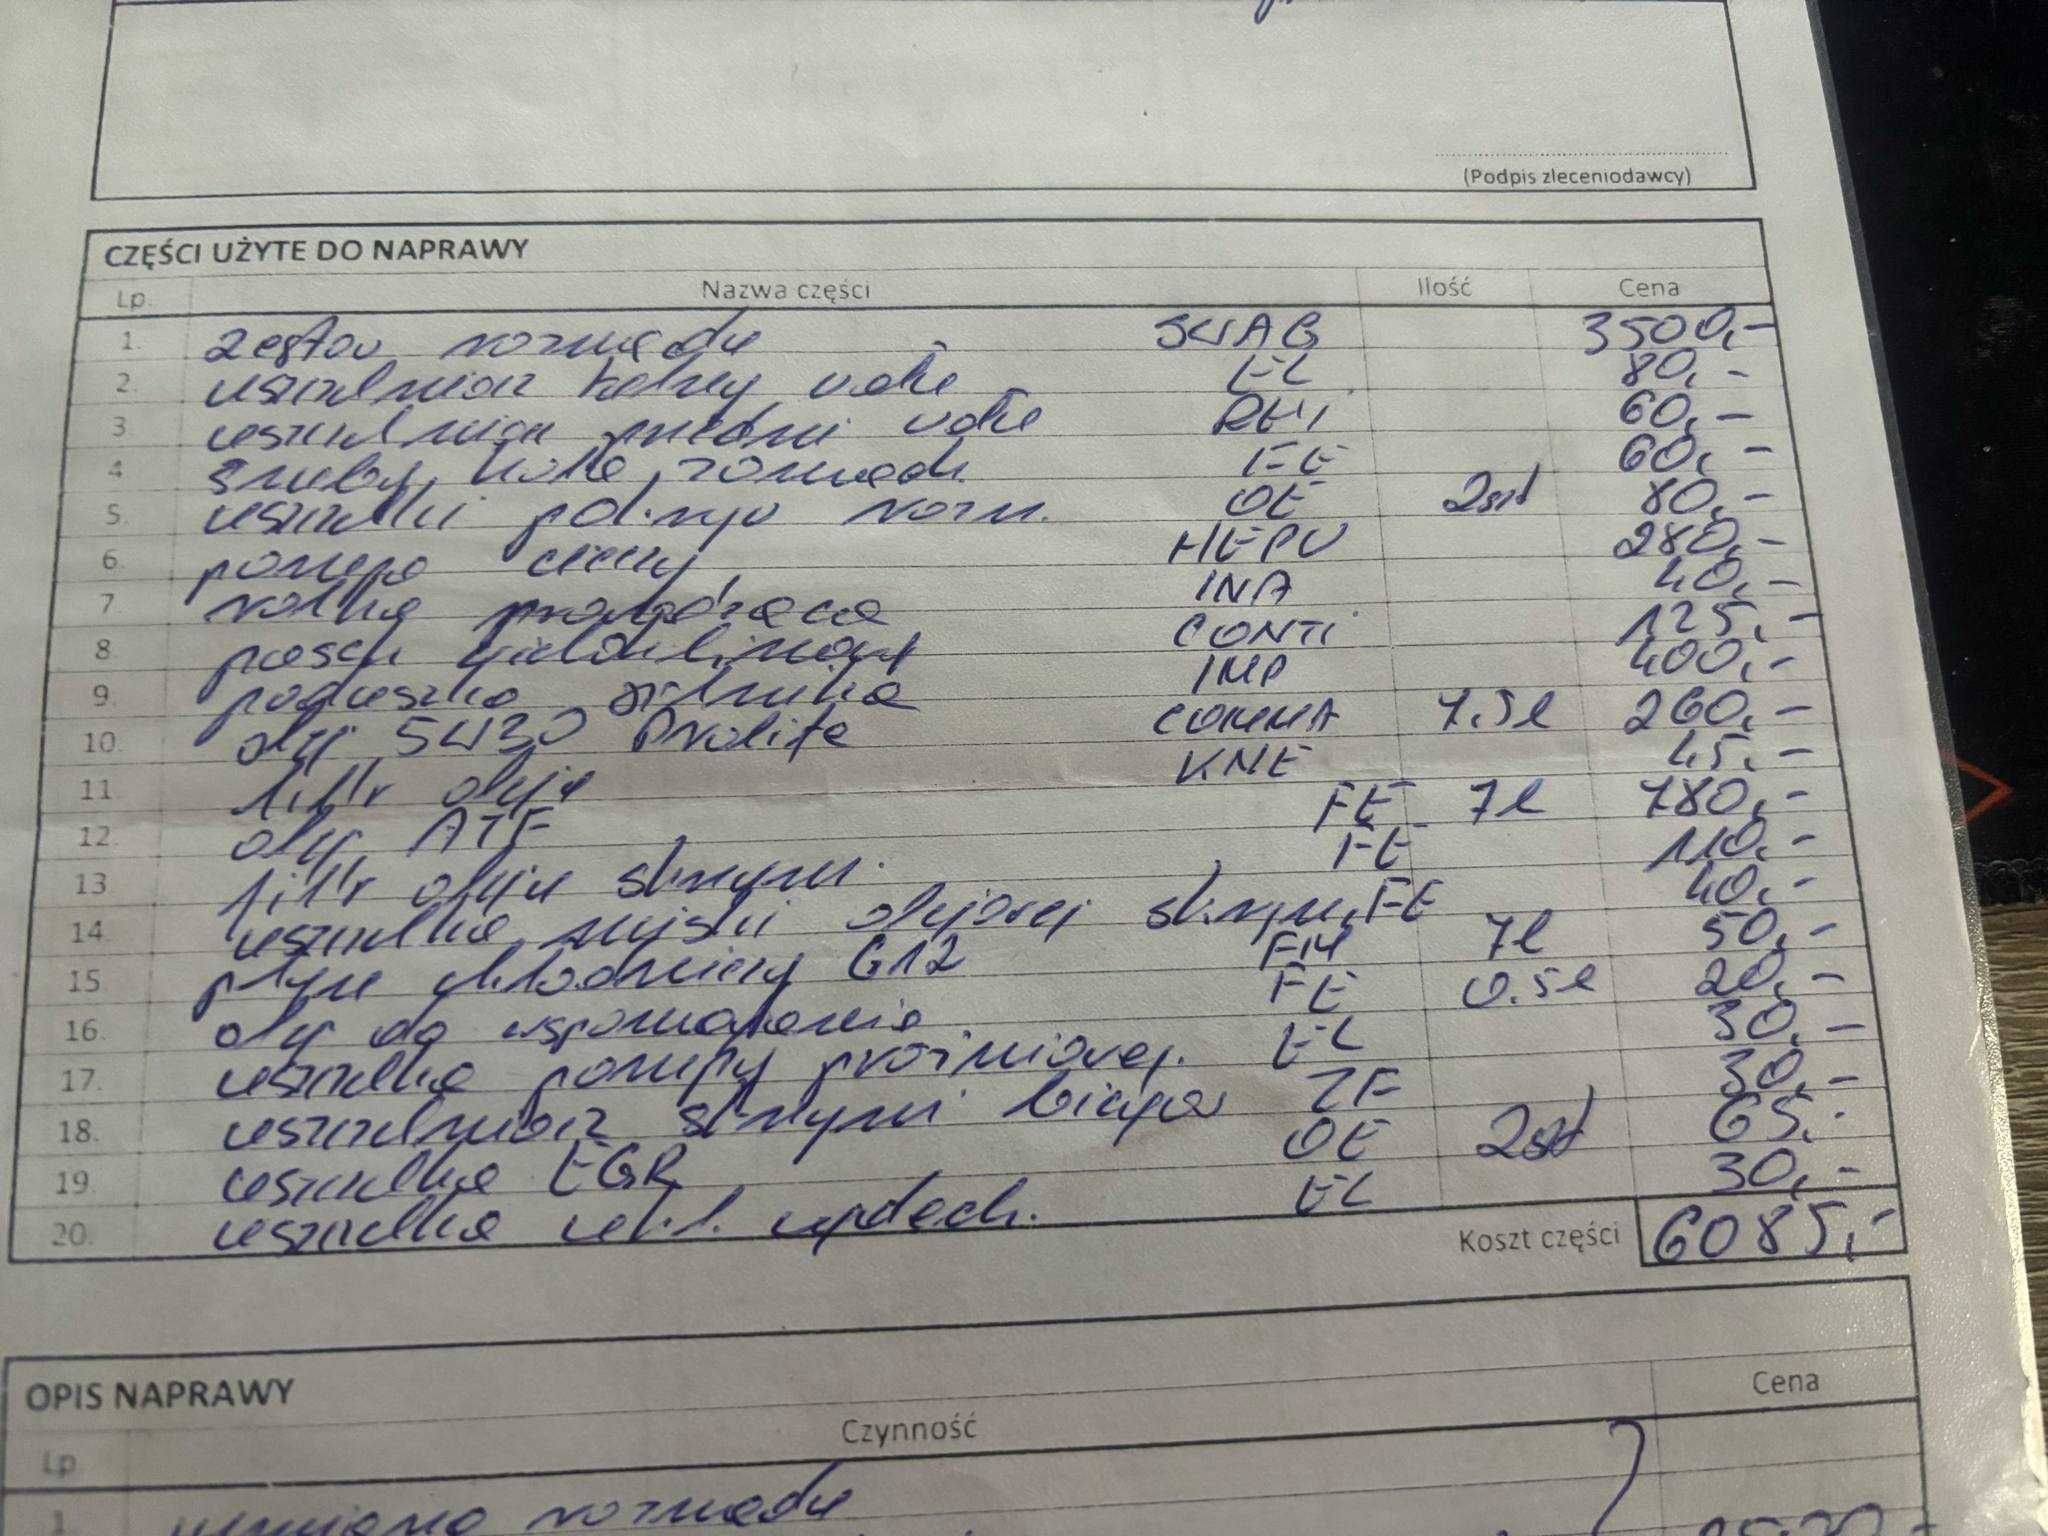 (Podpis zleceniodawcy)
CZĘŚCI UŻYTE DO NAPRAWY
Lp. Nazwa części Ilość Cena
1. zestaw rozrządu SWAG 3500,-
2. uszczelniacz wału EL 80,-
3 uszczelniacz przedni wału 60,-
4 śruby koła rozrządu FE 60,-
5. uszczelki pokryw rozrz. OE 2szt 80,-
6. pompa cieczy HEPU 280,-
7 rolka prowadząca INA 40,-
8 pasek wieloklinowy CONTI 125,-
9. poduszka silnika IMP 400,-
10. olej 5W30 Prolife COMMA 7.5l 260,-
11 filtr oleju KNE 45,-
12. olej ATF FE 7l 780,-
13 filtr oleju skrzyni. FE 110,-
14 uszczelka miski olejowej skrzyni FE 40,-
15 płyn chłodniczy G12 FM 7l 50,-
16. olej do wspomagania FE 0.5l 20,-
17. uszczelka pompy próżniowej. EL 30,-
18. uszczelniacz skrzyni biegów ZF 30,-
19 uszczelka EGR OE 2szt 65,-
20. uszczelka wydech. EL 30,-
Koszt części 6085,-
OPIS NAPRAWY
Lp Czynność Cena
1 wymiana rozrządu